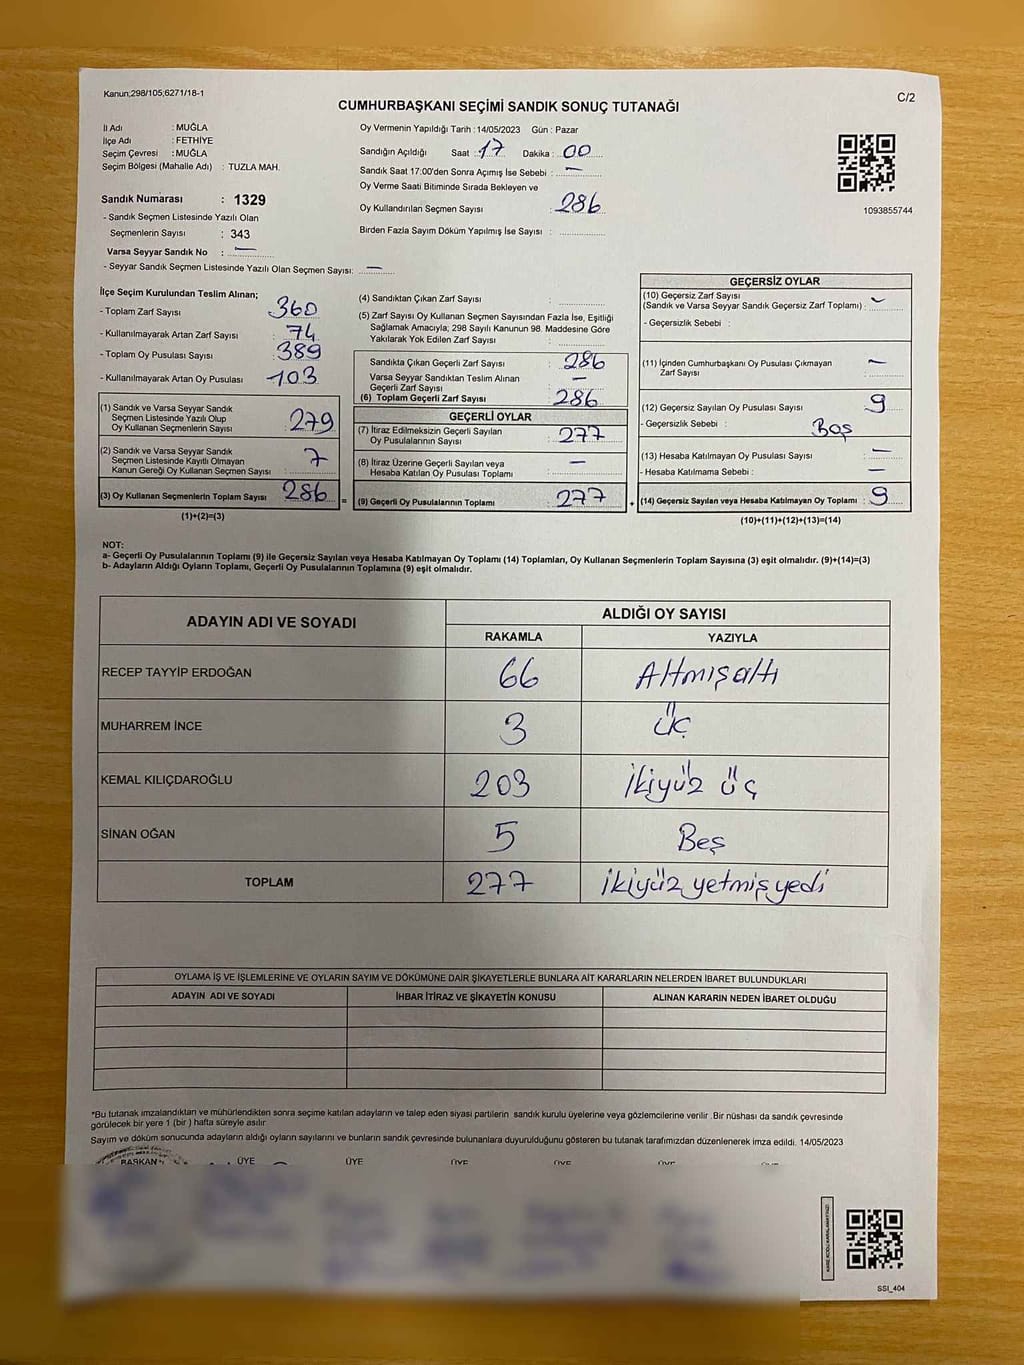 Kanun;298/105;6271/18-1
CUMHURBAŞKANI SEÇİMİ SANDIK SONUÇ TUTANAĞI
C/2
İl Adı : MUĞLA
İlçe Adı : FETHİYE
Seçim Çevresi : MUĞLA
Seçim Bölgesi (Mahalle Adı) : TUZLA MAH.
Sandık Numarası : 1329
- Sandık Seçmen Listesinde Yazılı Olan
Seçmenlerin Sayısı : 343
Varsa Seyyar Sandık No : —
- Seyyar Sandık Seçmen Listesinde Yazılı Olan Seçmen Sayısı: —
Oy Vermenin Yapıldığı Tarih : 14/05/2023 Gün : Pazar
Sandığın Açıldığı Saat : 17 Dakika : 00
Sandık Saat 17:00'den Sonra Açımış İse Sebebi : —
Oy Verme Saati Bitiminde Sırada Bekleyen ve
Oy Kullandırılan Seçmen Sayısı : 286
Birden Fazla Sayım Döküm Yapılmış İse Sayısı :
1093855744
İlçe Seçim Kurulundan Teslim Alınan;
- Toplam Zarf Sayısı : 360
- Kullanılmayarak Artan Zarf Sayısı : 74
- Toplam Oy Pusulası Sayısı : 389
- Kullanılmayarak Artan Oy Pusulası : 103
(1) Sandık ve Varsa Seyyar Sandık
Seçmen Listesinde Yazılı Olup
Oy Kullanan Seçmenlerin Sayısı : 279
(2) Sandık ve Varsa Seyyar Sandık
Seçmen Listesinde Kayıtlı Olmayan
Kanun Gereği Oy Kullanan Seçmen Sayısı : 7
(3) Oy Kullanan Seçmenlerin Toplam Sayısı : 286
(1)+(2)=(3)
(4) Sandıktan Çıkan Zarf Sayısı :
(5) Zarf Sayısı Oy Kullanan Seçmen Sayısından Fazla İse, Eşitliği
Sağlamak Amacıyla; 298 Sayılı Kanunun 98. Maddesine Göre
Yakılarak Yok Edilen Zarf Sayısı :
Sandıkta Çıkan Geçerli Zarf Sayısı : 286
Varsa Seyyar Sandıktan Teslim Alınan
Geçerli Zarf Sayısı : —
(6) Toplam Geçerli Zarf Sayısı : 286
GEÇERLİ OYLAR
(7) İtiraz Edilmeksizin Geçerli Sayılan
Oy Pusulalarının Sayısı : 277
(8) İtiraz Üzerine Geçerli Sayılan veya
Hesaba Katılan Oy Pusulası Toplamı : —
= (9) Geçerli Oy Pusulalarının Toplamı : 277
GEÇERSİZ OYLAR
(10) Geçersiz Zarf Sayısı
(Sandık ve Varsa Seyyar Sandık Geçersiz Zarf Toplamı) : —
- Geçersizlik Sebebi :
(11) İçinden Cumhurbaşkanı Oy Pusulası Çıkmayan
Zarf Sayısı : —
(12) Geçersiz Sayılan Oy Pusulası Sayısı : 9
- Geçersizlik Sebebi : Boş
(13) Hesaba Katılmayan Oy Pusulası Sayısı : —
- Hesaba Katılmama Sebebi : —
+ (14) Geçersiz Sayılan veya Hesaba Katılmayan Oy Toplamı : 9
(10)+(11)+(12)+(13)=(14)
NOT:
a- Geçerli Oy Pusulalarının Toplamı (9) ile Geçersiz Sayılan veya Hesaba Katılmayan Oy Toplamı (14) Toplamları, Oy Kullanan Seçmenlerin Toplam Sayısına (3) eşit olmalıdır. (9)+(14)=(3)
b- Adayların Aldığı Oyların Toplamı, Geçerli Oy Pusulalarının Toplamına (9) eşit olmalıdır.
ADAYIN ADI VE SOYADI
ALDIĞI OY SAYISI
RAKAMLA YAZIYLA
RECEP TAYYİP ERDOĞAN 66 Altmışaltı
MUHARREM İNCE 3 Üç
KEMAL KILIÇDAROĞLU 203 İkiyüz üç
SİNAN OĞAN 5 Beş
TOPLAM 277 İkiyüz yetmiş yedi
OYLAMA İŞ VE İŞLEMLERİNE VE OYLARIN SAYIM VE DÖKÜMÜNE DAİR ŞİKAYETLERLE BUNLARA AİT KARARLARIN NELERDEN İBARET BULUNDUKLARI
ADAYIN ADI VE SOYADI İHBAR İTİRAZ VE ŞİKAYETİN KONUSU ALINAN KARARIN NEDEN İBARET OLDUĞU
*Bu tutanak imzalandıktan ve mühürlendikten sonra seçime katılan adayların ve talep eden siyasi partilerin sandık kurulu üyelerine veya gözlemcilerine verilir .Bir nüshası da sandık çevresinde
görülecek bir yere 1 (bir ) hafta süreyle asılır
Sayım ve döküm sonucunda adayların aldığı oyların sayılarını ve bunların sandık çevresinde bulunanlara duyurulduğunu gösteren bu tutanak tarafımızdan düzenlenerek imza edildi. 14/05/2023
BAŞKAN ÜYE ÜYE ÜYE ÜYE ÜYE
KARE KODU KARALAMAYINIZ!
SSI_404